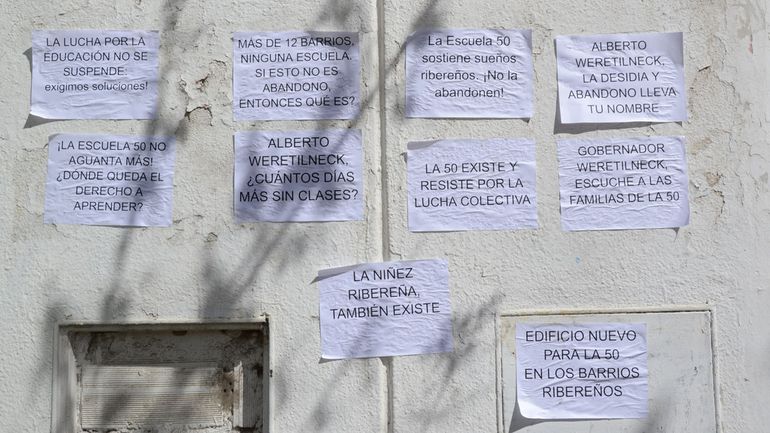 LA LUCHA POR LA
EDUCACIÓN NO SE
SUSPENDE:
exigimos soluciones!
MÁS DE 12 BARRIOS,
NINGUNA ESCUELA.
SI ESTO NO ES
ABANDONO,
ENTONCES QUÉ ES?
La Escuela 50
sostiene sueños
ribereños. ¡No la
abandonen!
ALBERTO
WERETILNECK,
LA DESIDIA Y
ABANDONO LLEVA
TU NOMBRE
¡LA ESCUELA 50 NO
AGUANTA MÁS!
¿DÓNDE QUEDA EL
DERECHO A
APRENDER?
ALBERTO
WERETILNECK,
¿CUÁNTOS DÍAS
MÁS SIN CLASES?
LA 50 EXISTE Y
RESISTE POR LA
LUCHA COLECTIVA
GOBERNADOR
WERETILNECK,
ESCUCHE A LAS
FAMILIAS DE LA 50
LA NIÑEZ
RIBEREÑA,
TAMBIÉN EXISTE
EDIFICIO NUEVO
PARA LA 50
EN LOS BARRIOS
RIBEREÑOS